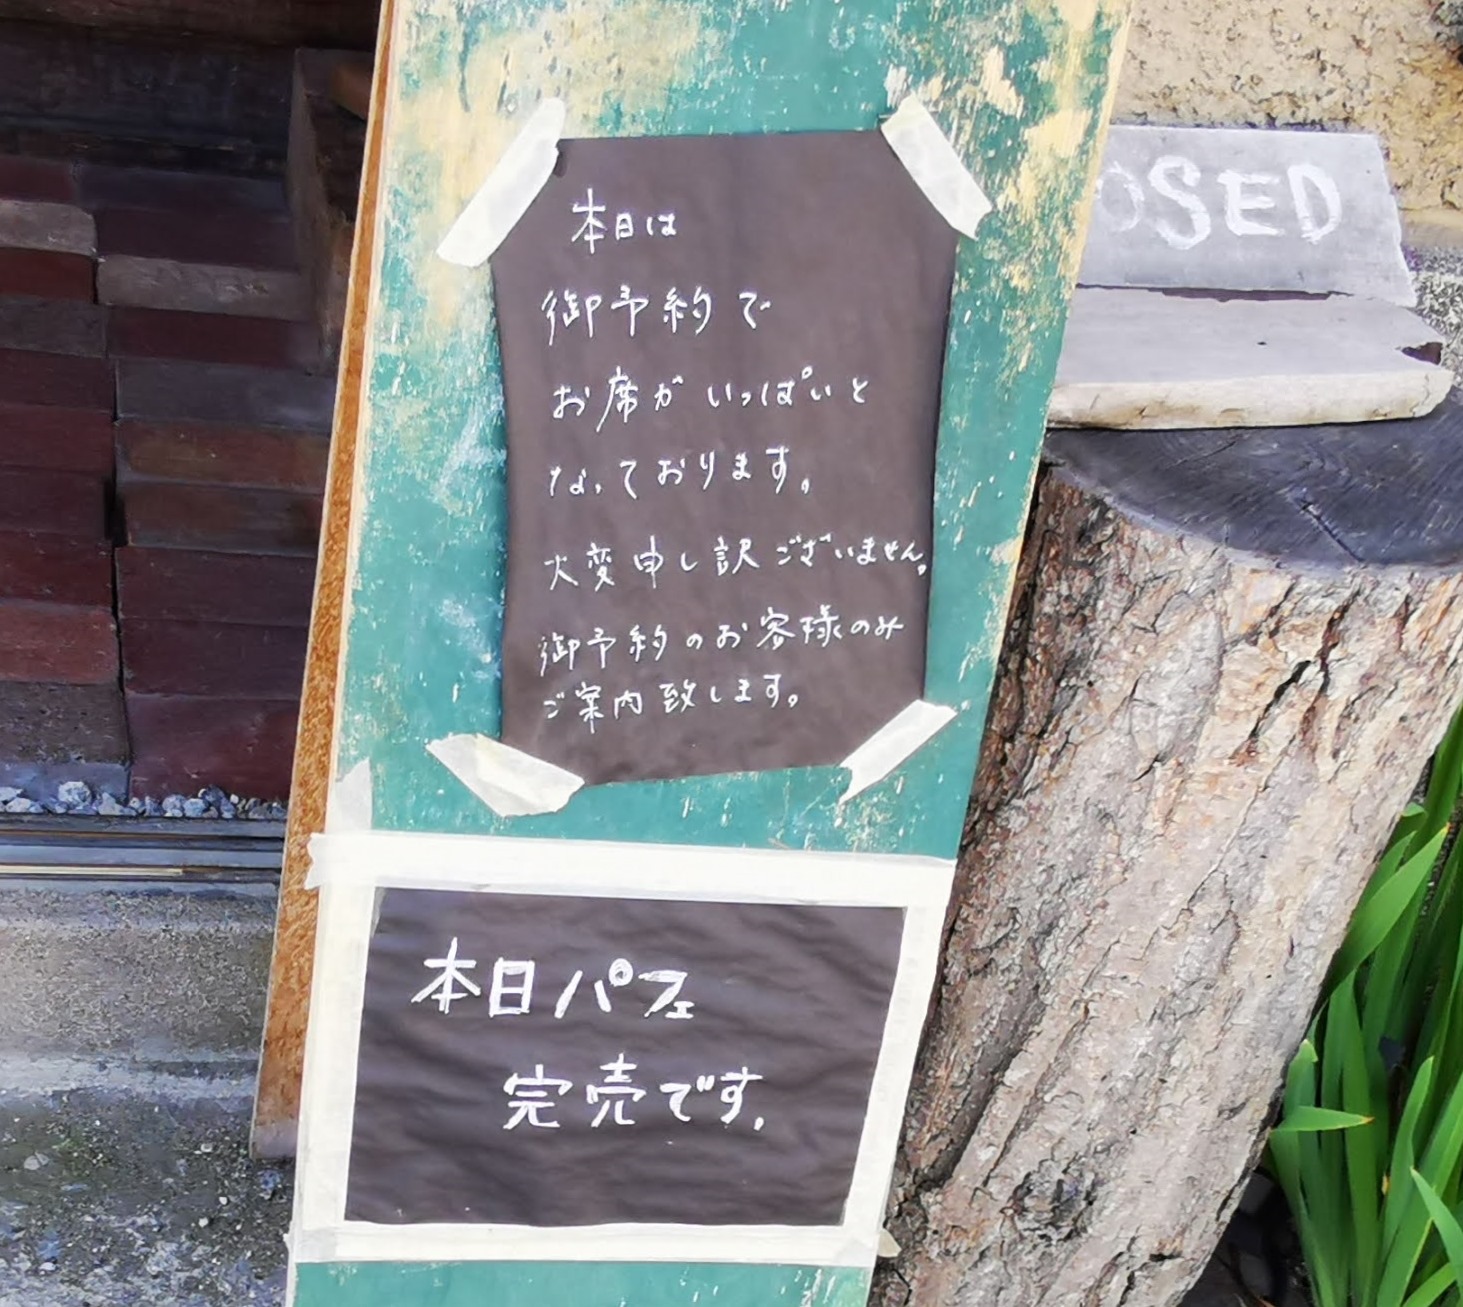 本日は
御予約で
お席がいっぱいと
なっております。
大変申し訳ございません。
御予約のお客様のみ
ご案内致します。
本日パフェ
完売です.
OSED